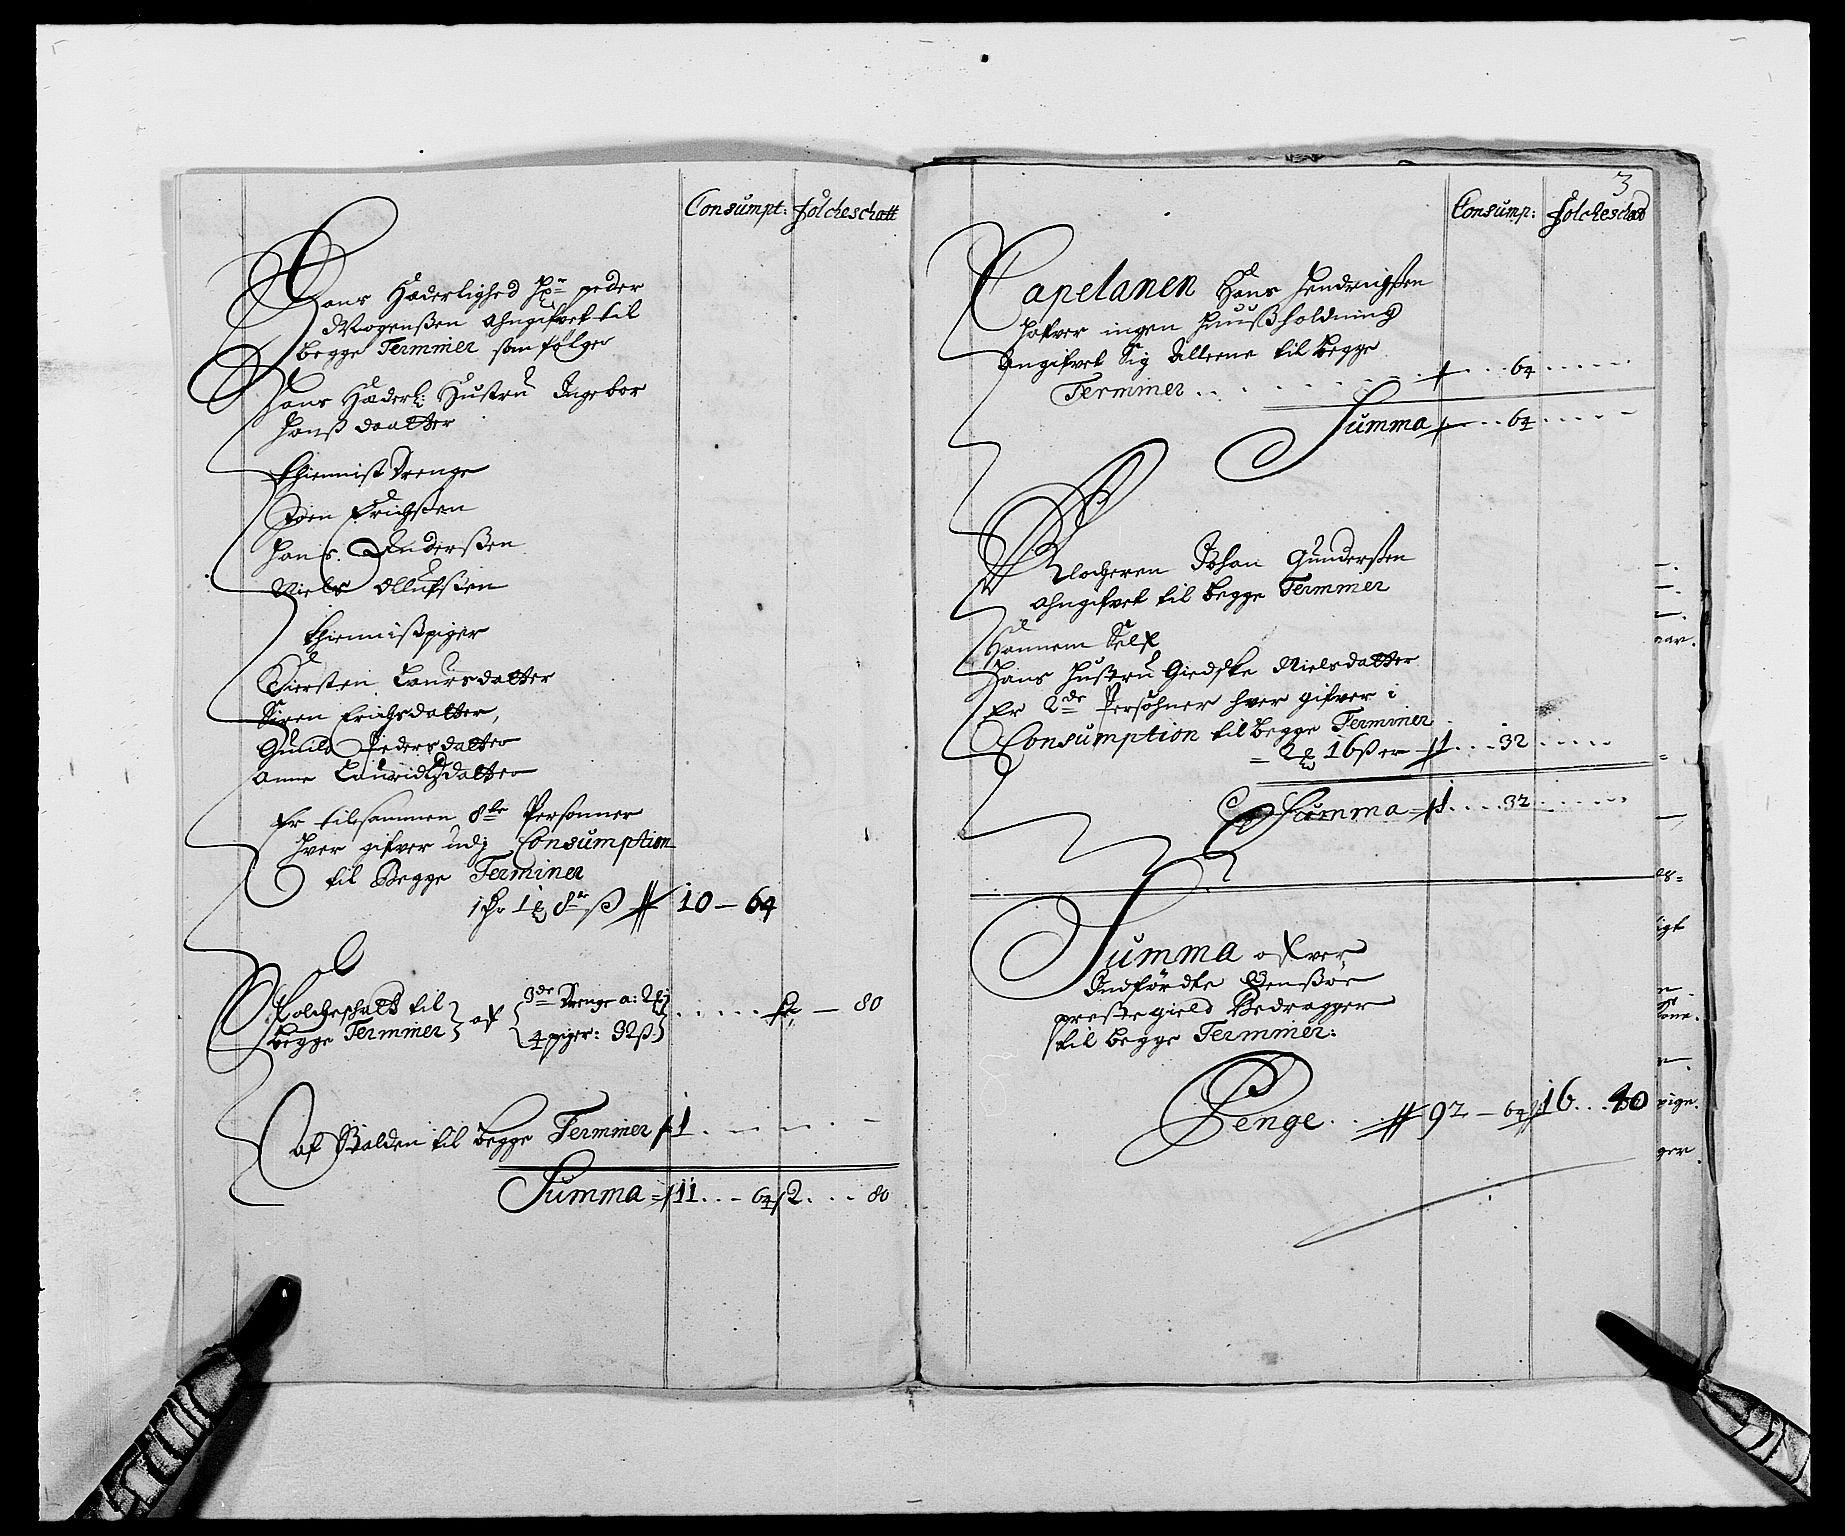 Consumpt: Folcheschatt
Hans Hæderlighed Hr peder
Mogensßen Ahngifvet til
begge Terminer som følger
Hans Hæderl: Hustru Ingebor
Hanß daatter
Thiennist Drenge
Joen Erichsen
Hans Anderßen
Niels Ollufsen
Thiennistpiger
Kiersten Laursdatter
Siren Erichsdatter,
Gunild Pedersdatter
Anne Lauridtzdatter
Er tilsammen 8te Personner
Hver gifver udj Consumption
til Begge Terminer
1 Mr 8 ß 10 – 64
Folcheschatt til
begge Terminer af 3de Drenge a: 2
4 piger: 32 ß 2 – 80
af Qvalden til begge Terminer 1
Summa 11 . . - 64 2 . . . 80
3
Consump: Folcheschad
Capelanen Hans Hendrigßen
Hafver ingen Huußholdning
Angifvet Sig Alleene til begge
Terminer . . . . 64
Summa . . 64
Klocheren Johan Gunderßen
Ahngifvet til begge Terminer
Hannem Self
Hans Hustru Giedske Nielsdatter
Er 2de Persohner hver gifver i
Consumption til begge Terminer
2 16 ß er 1 . . . 32
Summa 1 . . . . 32
Summa ofver
Indførdte
prestegield Bedragger
til begge Terminer:
Penge . . 92 – 64 16 . . . 40